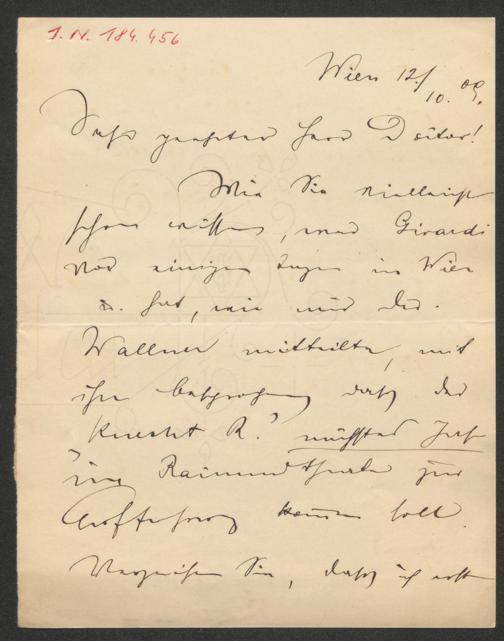 J. N. 184.456
Wien 12./10. 09.
Sehr geehrter Herr Doctor!
Wie Sie vielleicht
schon wissen, war Girardi
vor einigen Tagen in Wien
u. hat, wie mir Dir.
Wallner mitteilte, mit
ihm besprochen daß der
"Knecht R." nächstes Jahr
im Raimundtheater zur
Aufführung kommen soll.
Verzeihen Sie, daß ich erst